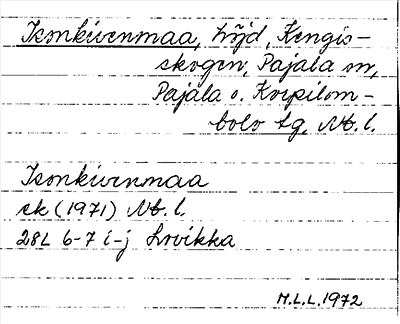 Isonkivenmaa, höjd, Kengis-
skogen, Pajala sn,
Pajala o. Korpilom-
bolo tg, Nb. l.
Isonkivenmaa
sk (1971) Nb. l.
28L 6-7 i-j Lovikka
M.L.L. 1972